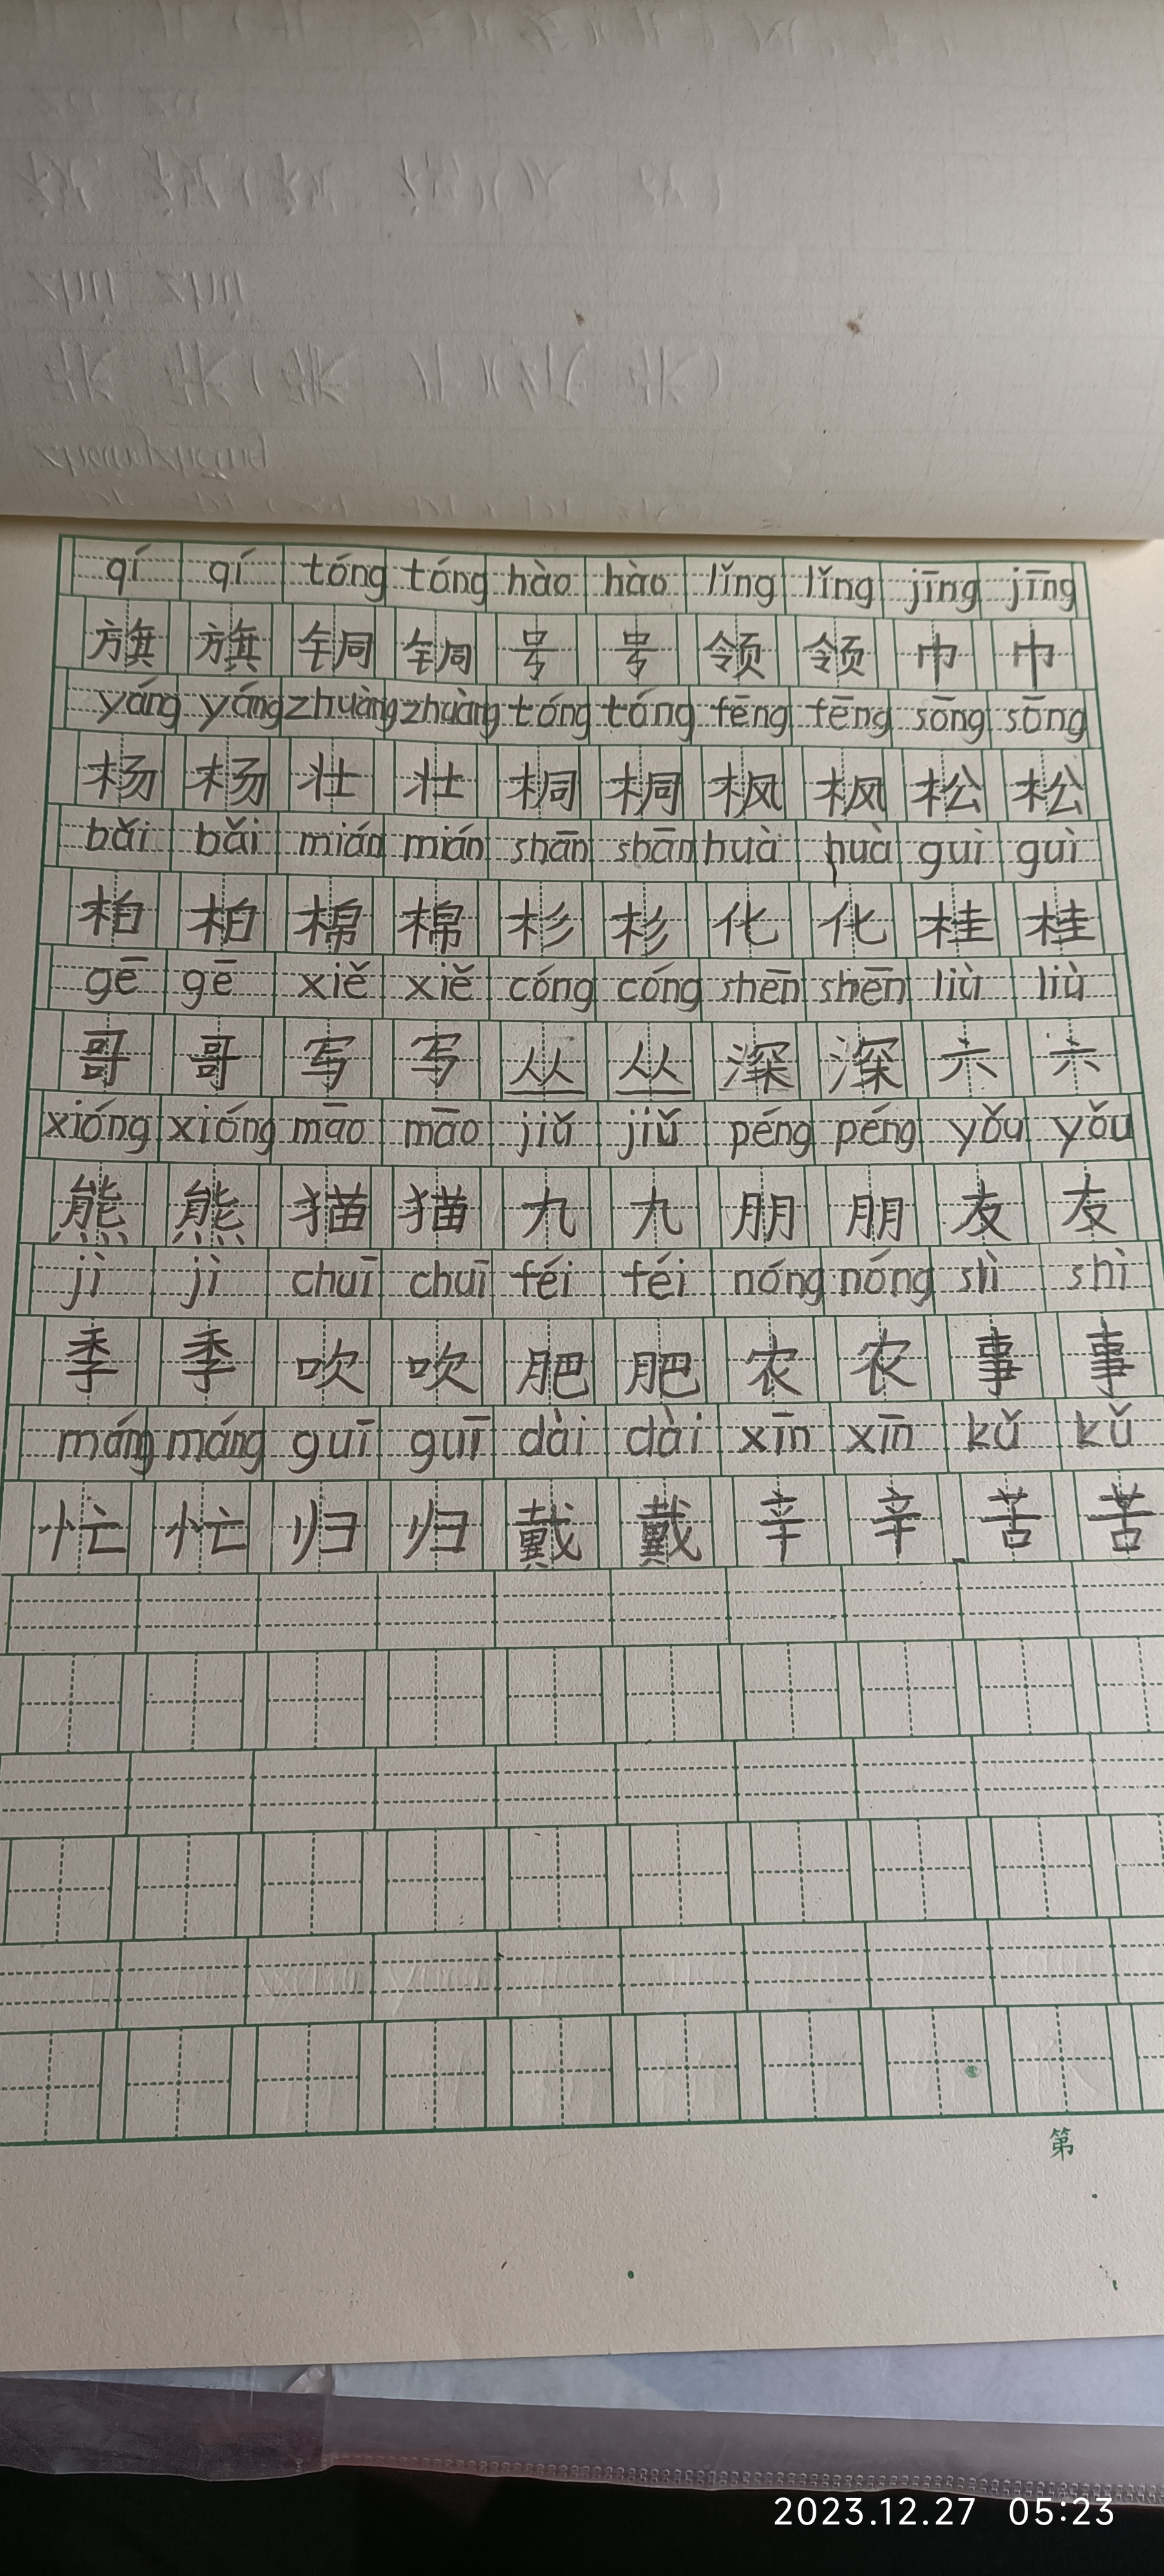 qí qí tóng tóng hào hào lǐng lǐng jīng jīng
旗 旗 铜 铜 号 号 领 领 巾 巾
yáng yáng zhuàng zhuàng tóng tóng fēng fēng sōng sōng
杨 杨 壮 壮 桐 桐 枫 枫 松 松
bǎi bǎi mián mián shān shān huà huà guì guì
柏 柏 棉 棉 杉 杉 化 化 桂 桂
gē gē xiě xiě cóng cóng shēn shēn liù liù
哥 哥 写 写 丛 丛 深 深 六 六
xióng xióng māo māo jiǔ jiǔ péng péng yǒu yǒu
熊 熊 猫 猫 九 九 朋 朋 友 友
jì jì chuī chuī féi féi nóng nóng shì shì
季 季 吹 吹 肥 肥 农 农 事 事
máng máng guī guī dài dài xīn xīn kǔ kǔ
忙 忙 归 归 戴 戴 辛 辛 苦 苦
第
2023.12.27 05:23